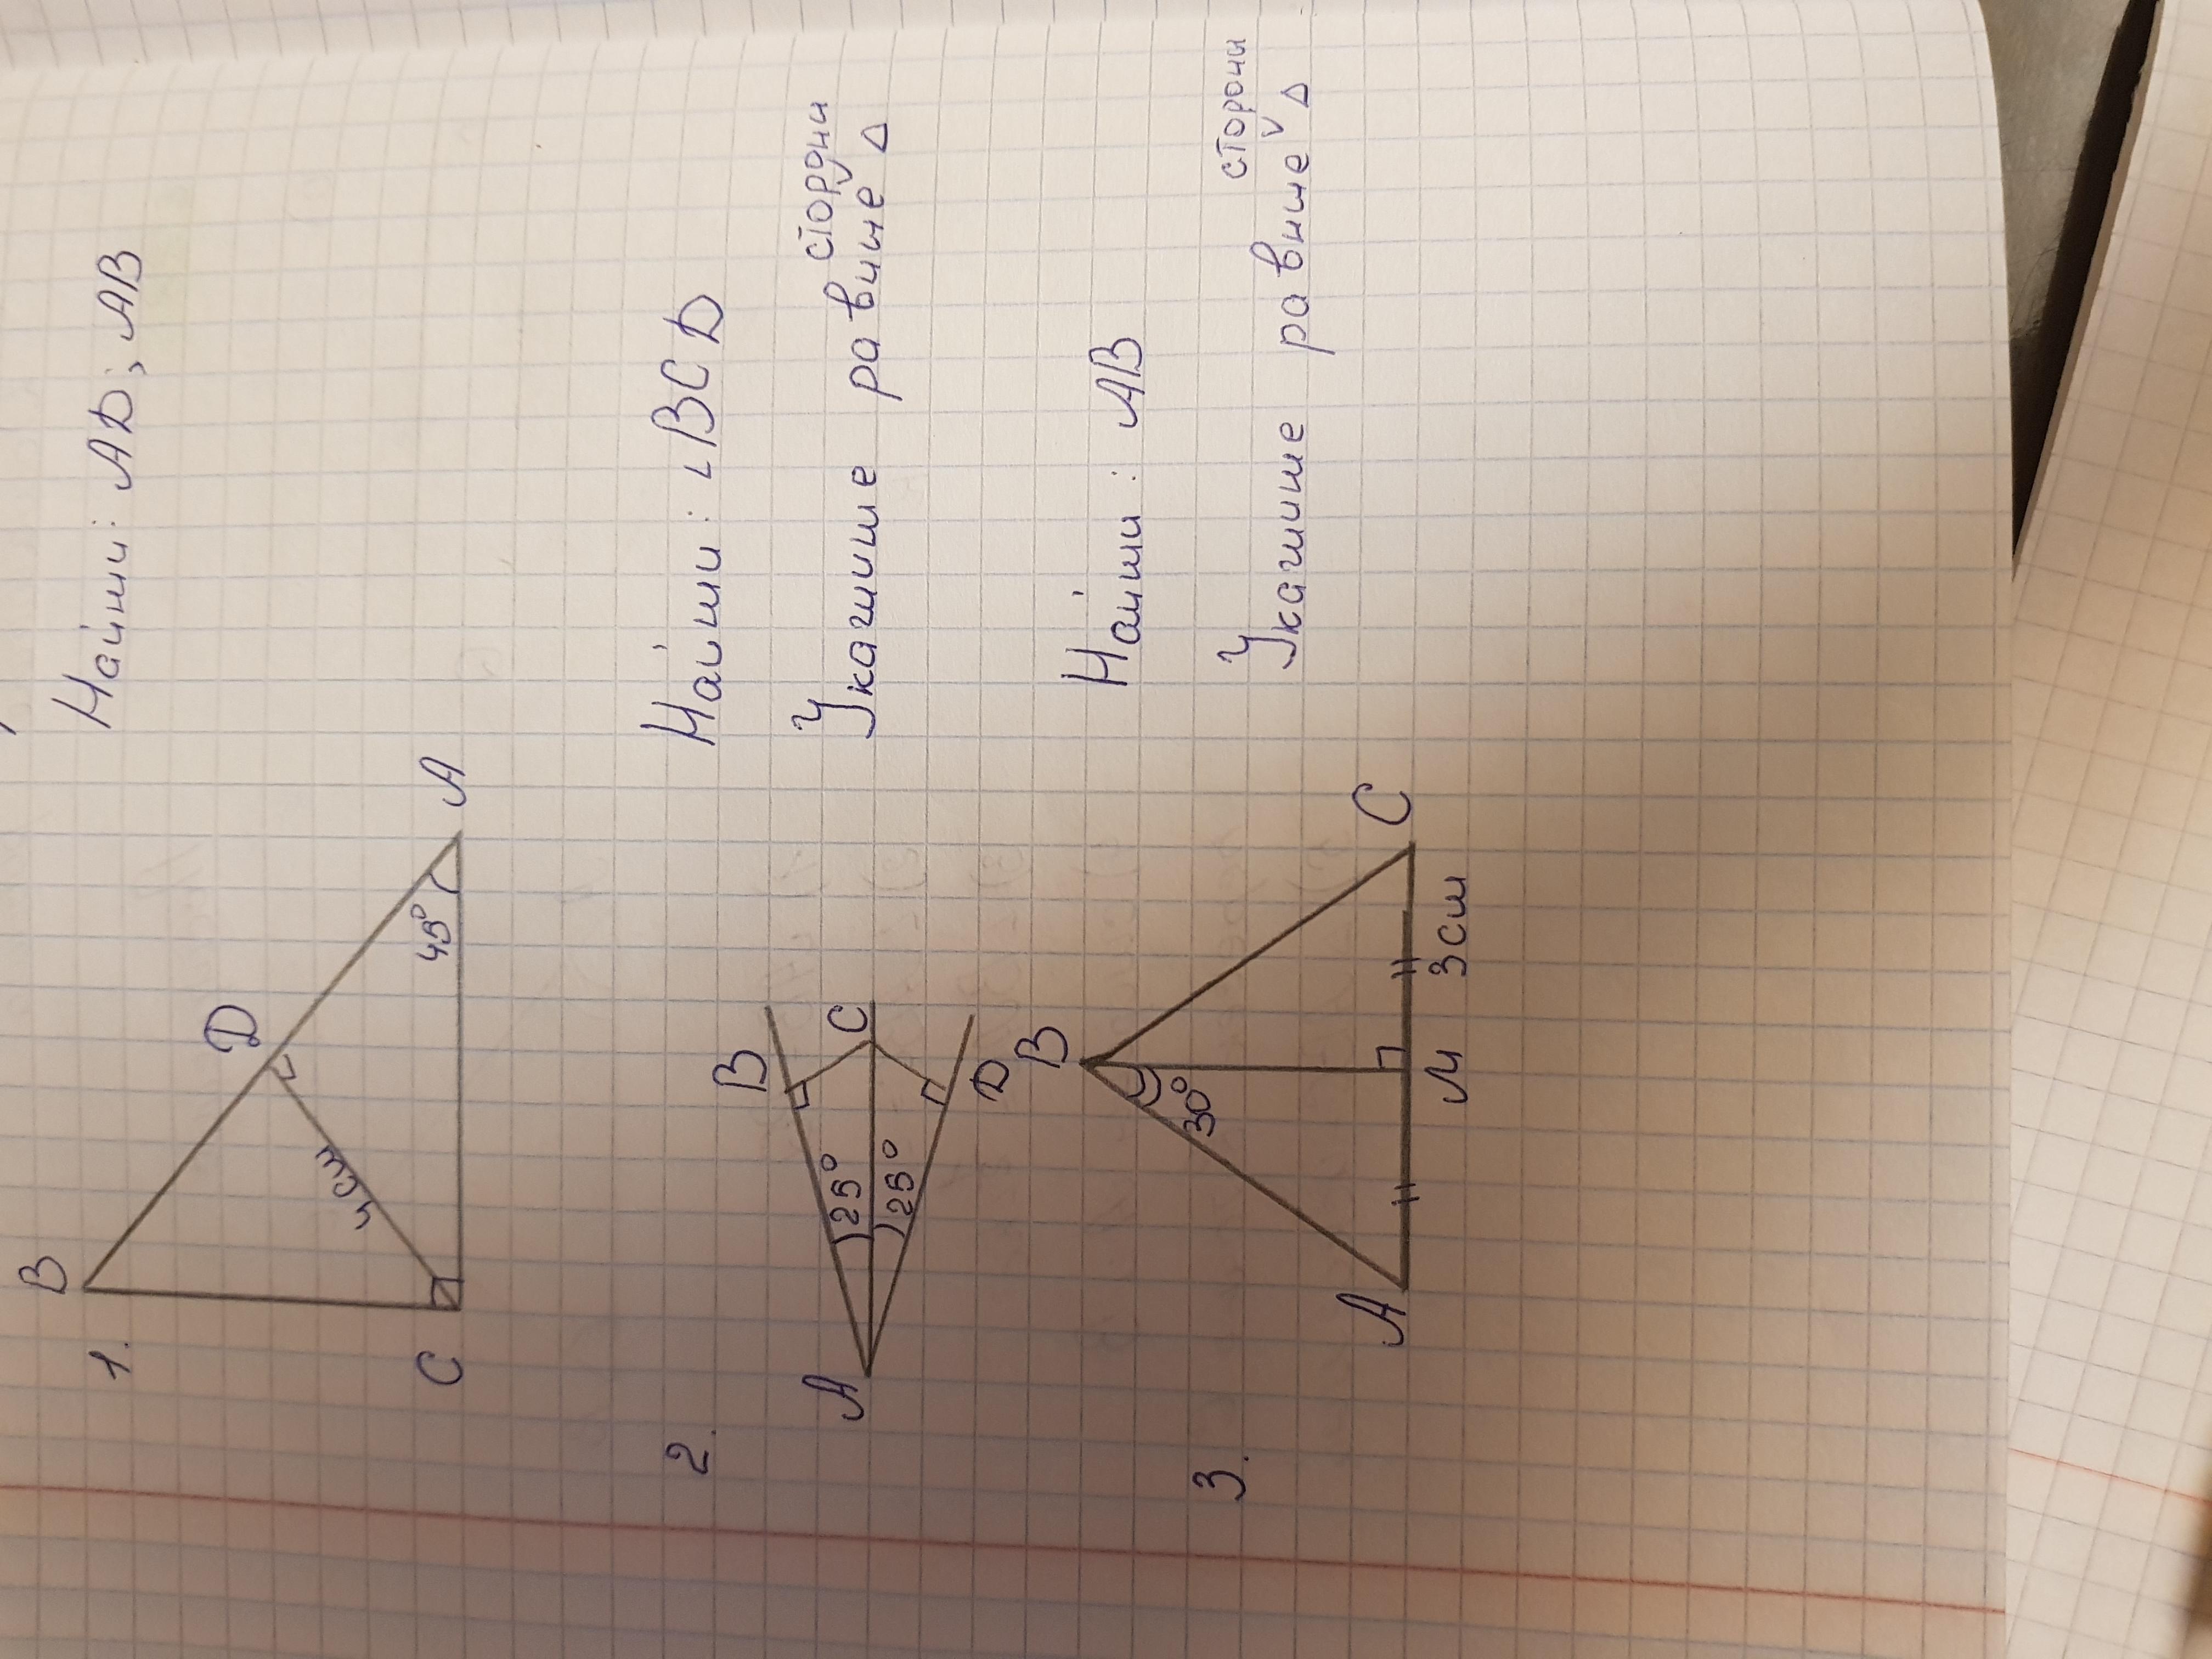 1.
B
D
A
C
4см
45°
Найти: AD; AB
2.
A
B
C
D
25°
25°
Найти: ∟BCD
стороны
Укажите равные ∨ △
3.
B
A
M
C
30°
3см
Найти: AB
стороны
Укажите равные ∨ △